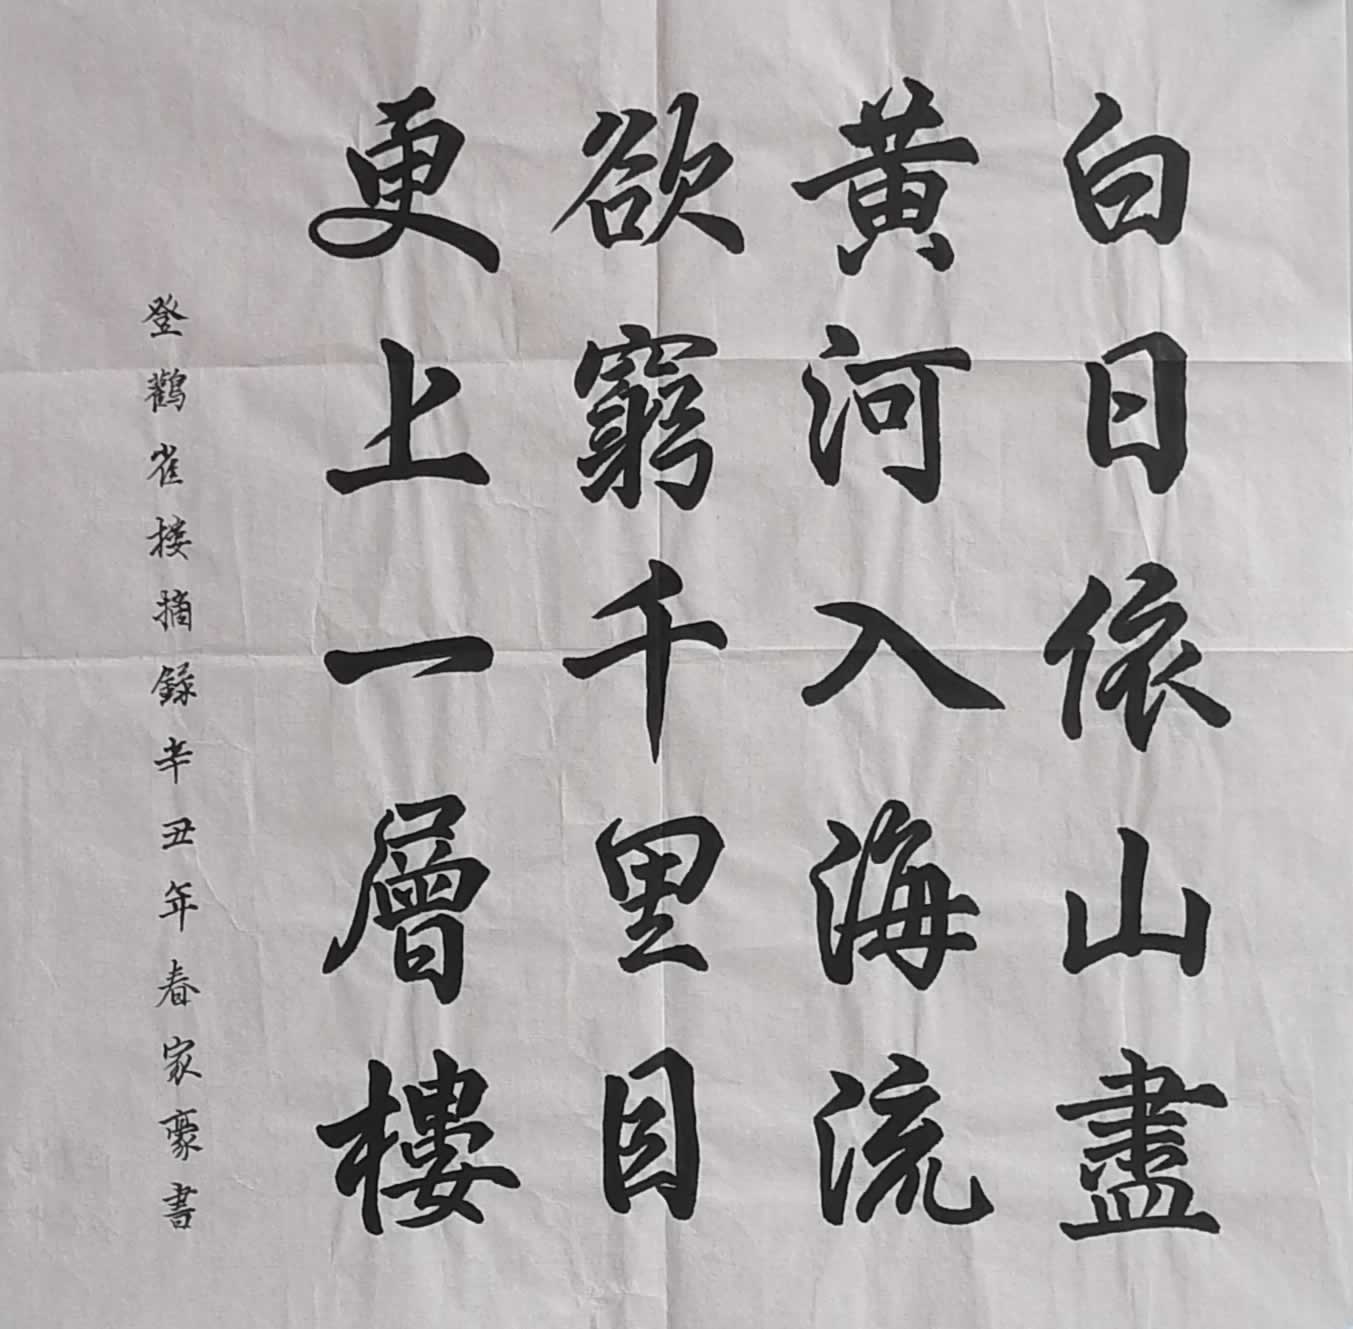 白日依山盡
黃河入海流
欲窮千里目
更上一層樓
登鸛雀楼摘録辛丑年春家豪書